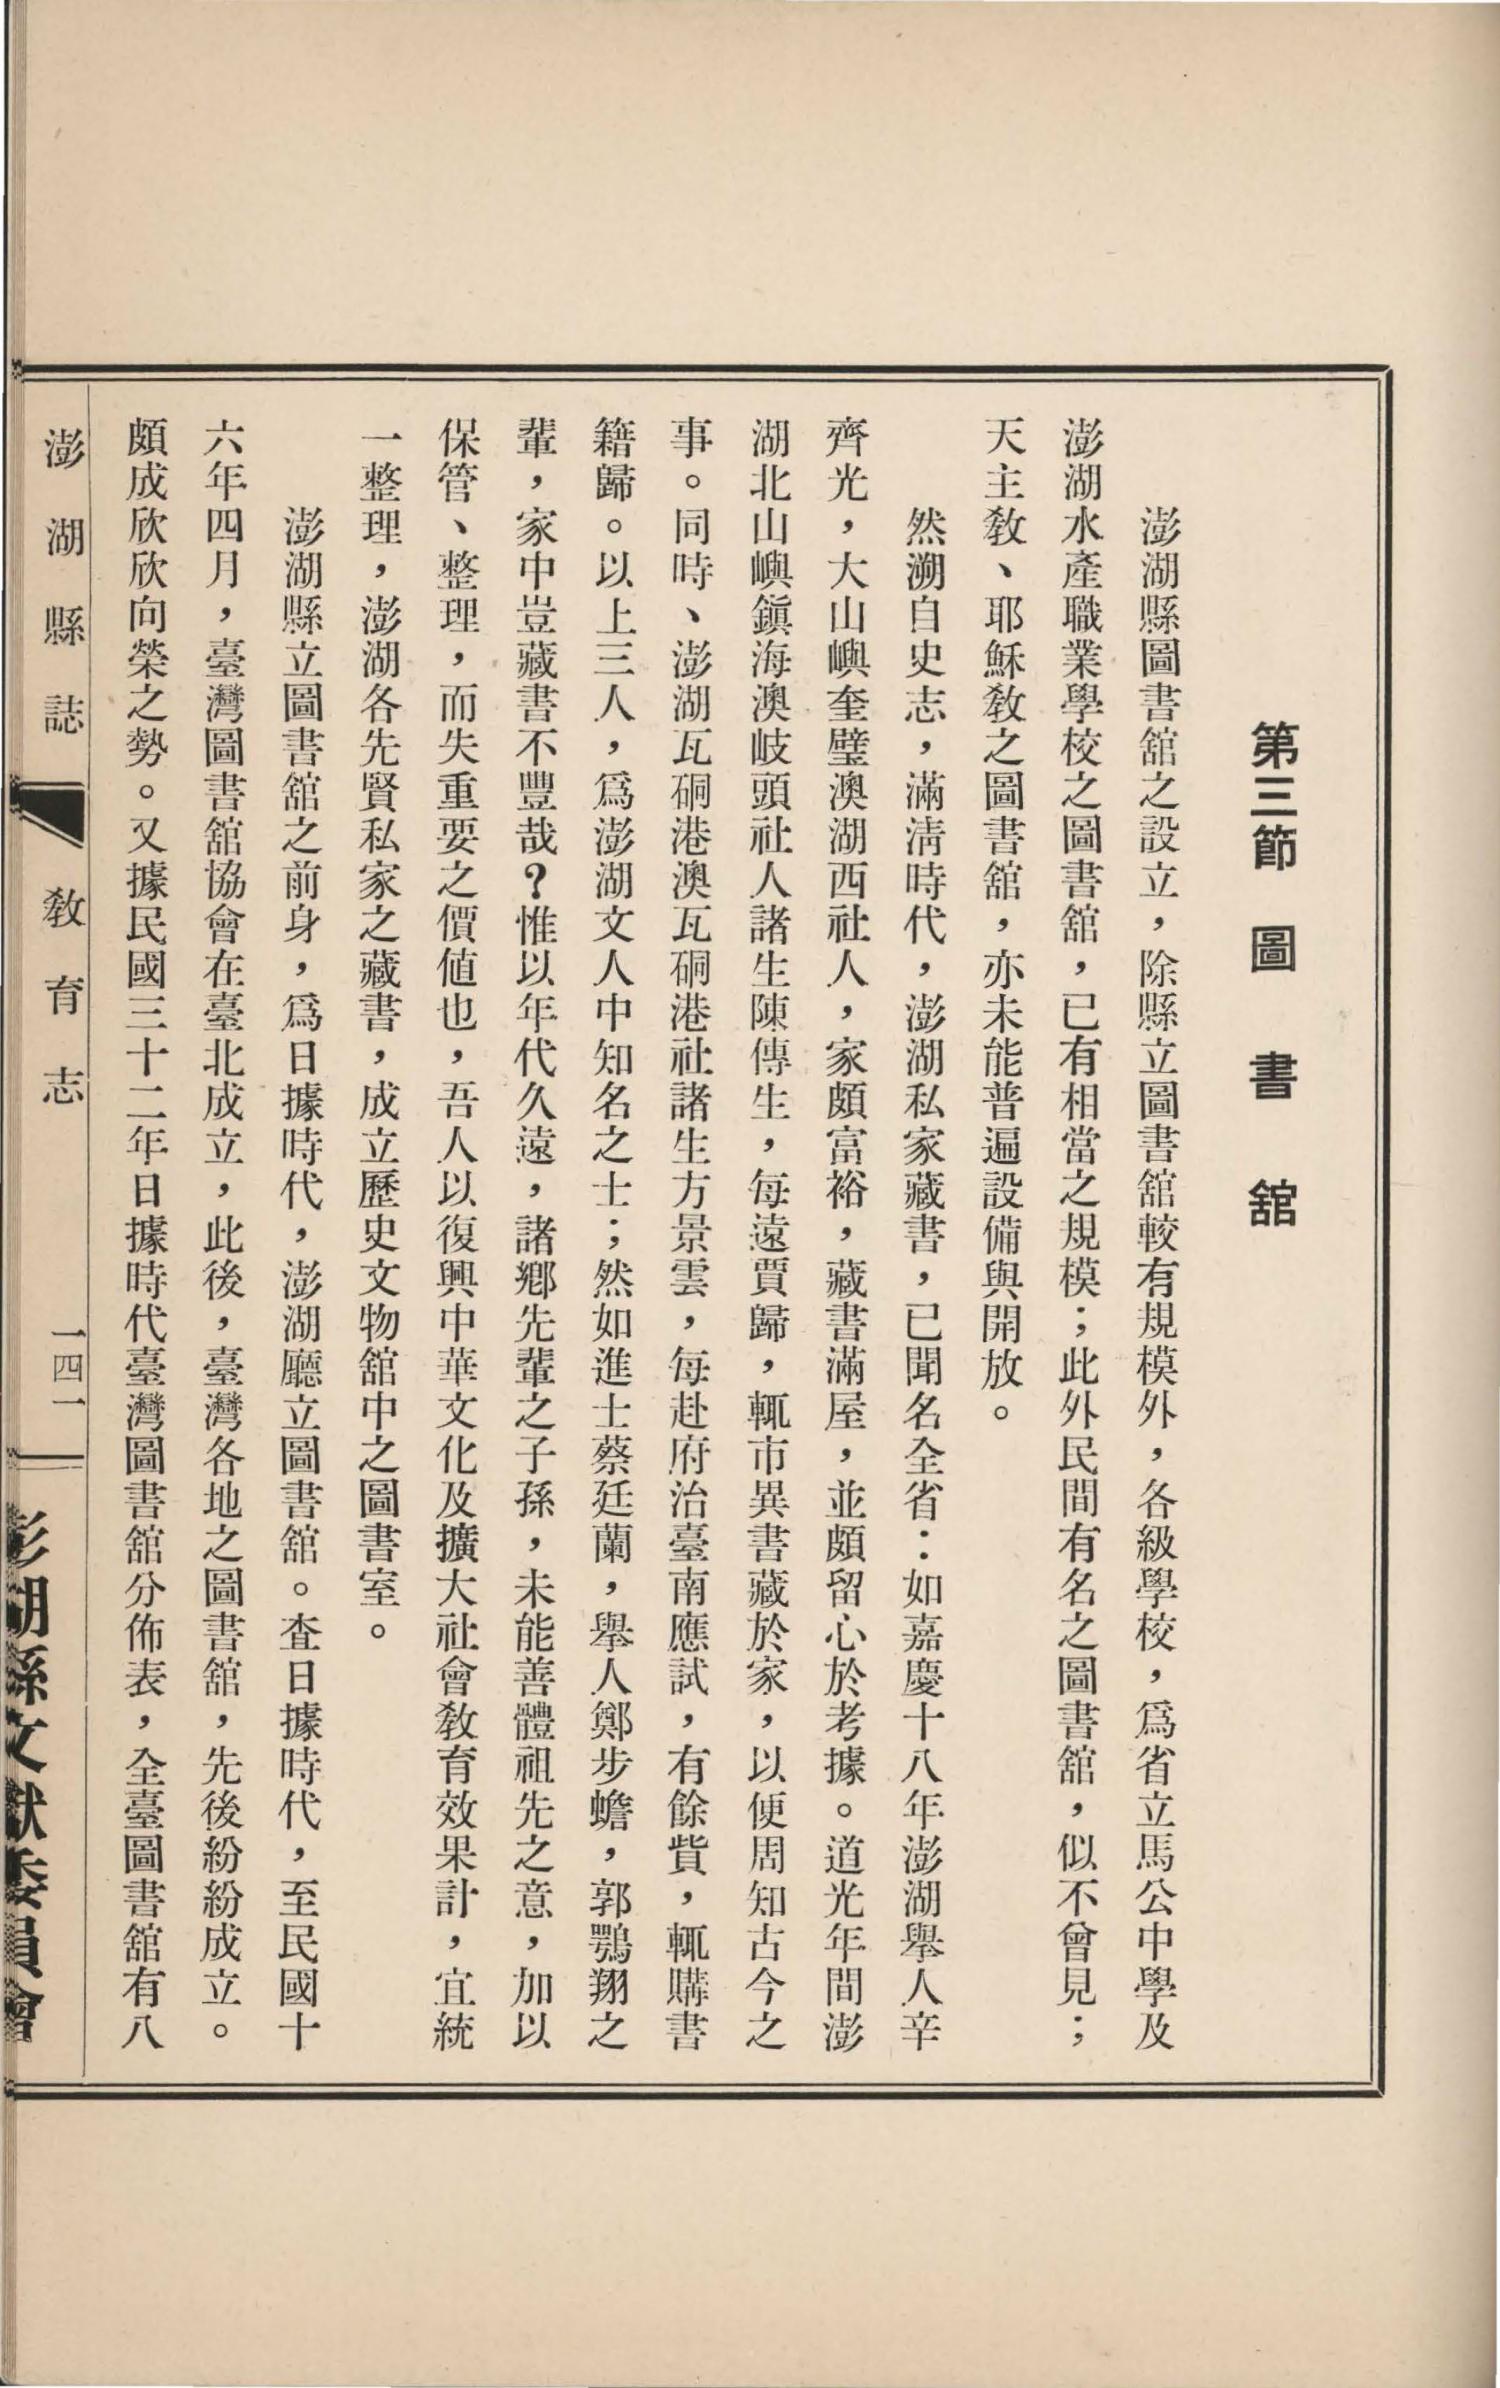 第三節　圖書舘
澎湖縣圖書舘之設立，除縣立圖書舘較有規模外，各級學校，爲省立馬公中學及
澎湖水產職業學校之圖書舘，已有相當之規模；此外民間有名之圖書舘，似不曾見；
天主敎、耶穌敎之圖書舘，亦未能普遍設備與開放。
然溯自史志，滿淸時代，澎湖私家藏書，已聞名全省：如嘉慶十八年澎湖舉人辛
齊光，大山嶼奎璧澳湖西社人，家頗富裕，藏書滿屋，並頗留心於考據。道光年間澎
湖北山嶼鎭海澳岐頭社人諸生陳傳生，每遠賈歸，輒市異書藏於家，以便周知古今之
事。同時、澎湖瓦硐港澳瓦硐港社諸生方景雲，每赴府治臺南應試，有餘貲，輒購書
籍歸。以上三人，爲澎湖文人中知名之士；然如進士蔡廷蘭，舉人鄭步蟾，郭鶚翔之
輩，家中豈藏書不豐哉？惟以年代久遠，諸鄕先輩之子孫，未能善體祖先之意，加以
保管、整理，而失重要之價値也，吾人以復興中華文化及擴大社會敎育效果計，宜統
一整理，澎湖各先賢私家之藏書，成立歷史文物舘中之圖書室。
澎湖縣立圖書舘之前身，爲日據時代，澎湖廳立圖書舘。査日據時代，至民國十
六年四月，臺灣圖書舘協會在臺北成立，此後，臺灣各地之圖書舘，先後紛紛成立。
頗成欣欣向榮之勢。又據民國三十二年日據時代臺灣圖書舘分佈表，全臺圖書舘有八
澎湖縣誌　敎育志　一四一
澎湖縣文獻委員會